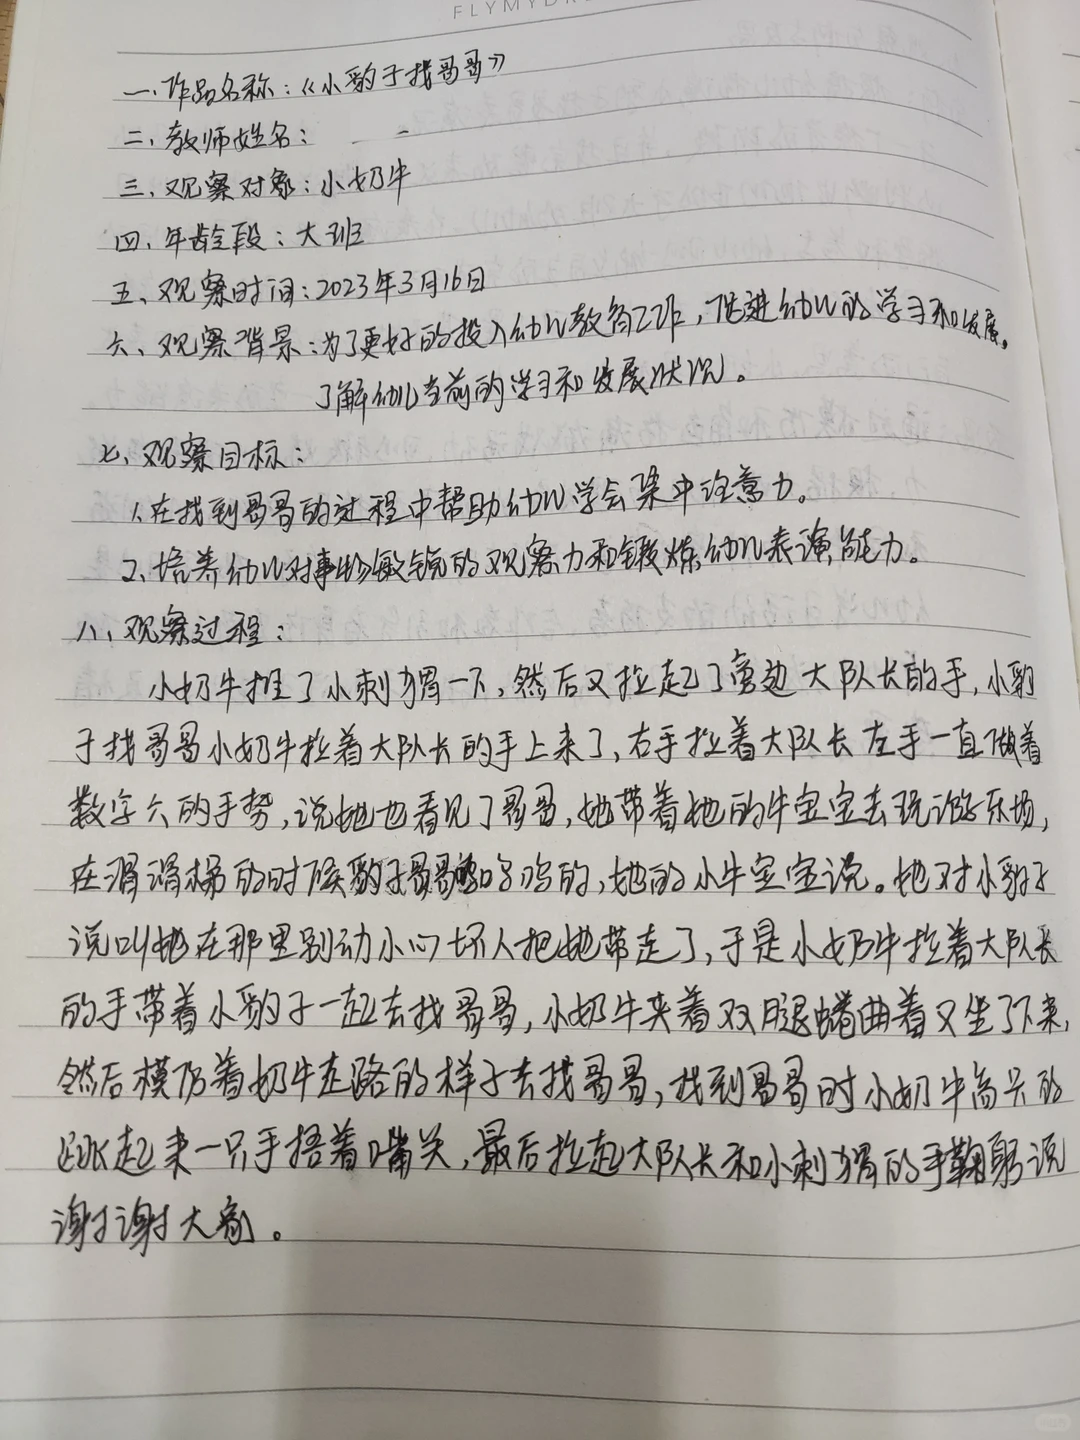 FLYMYDR
一、作品名称：《小豹子找哥哥》
二、教师姓名：
三、观察对象：小奶牛
四、年龄段：大班
五、观察时间：2023年3月16日
六、观察背景：为了更好的投入幼儿教育工作，促进幼儿的学习和发展。
了解幼儿当前的学习和发展状况。
七、观察目标：
1、在找到哥哥的过程中帮助幼儿学会集中注意力。
2、培养幼儿对事物敏锐的观察力和锻炼幼儿表演能力。
八、观察过程：
小奶牛推了小刺猬一下，然后又拉起了旁边大队长的手，小豹
子找哥哥小奶牛拉着大队长的手上来了，右手拉着大队长左手一直做着
数字六的手势，说她也看见了哥哥，她带着她的牛宝宝去玩游乐场，
在滑滑梯的时候豹子哥哥的，她的小牛宝宝说。她对小豹子
说叫她在那里别动小心坏人把她带走了，于是小奶牛拉着大队长
的手带着小豹子一起去找哥哥，小奶牛夹着双腿蜷曲着又坐了下来，
然后模仿着奶牛走路的样子去找哥哥，找到哥哥时小奶牛高兴的
跳起来一只手捂着嘴笑，最后拉起大队长和小刺猬的手鞠躬说
谢谢大家。